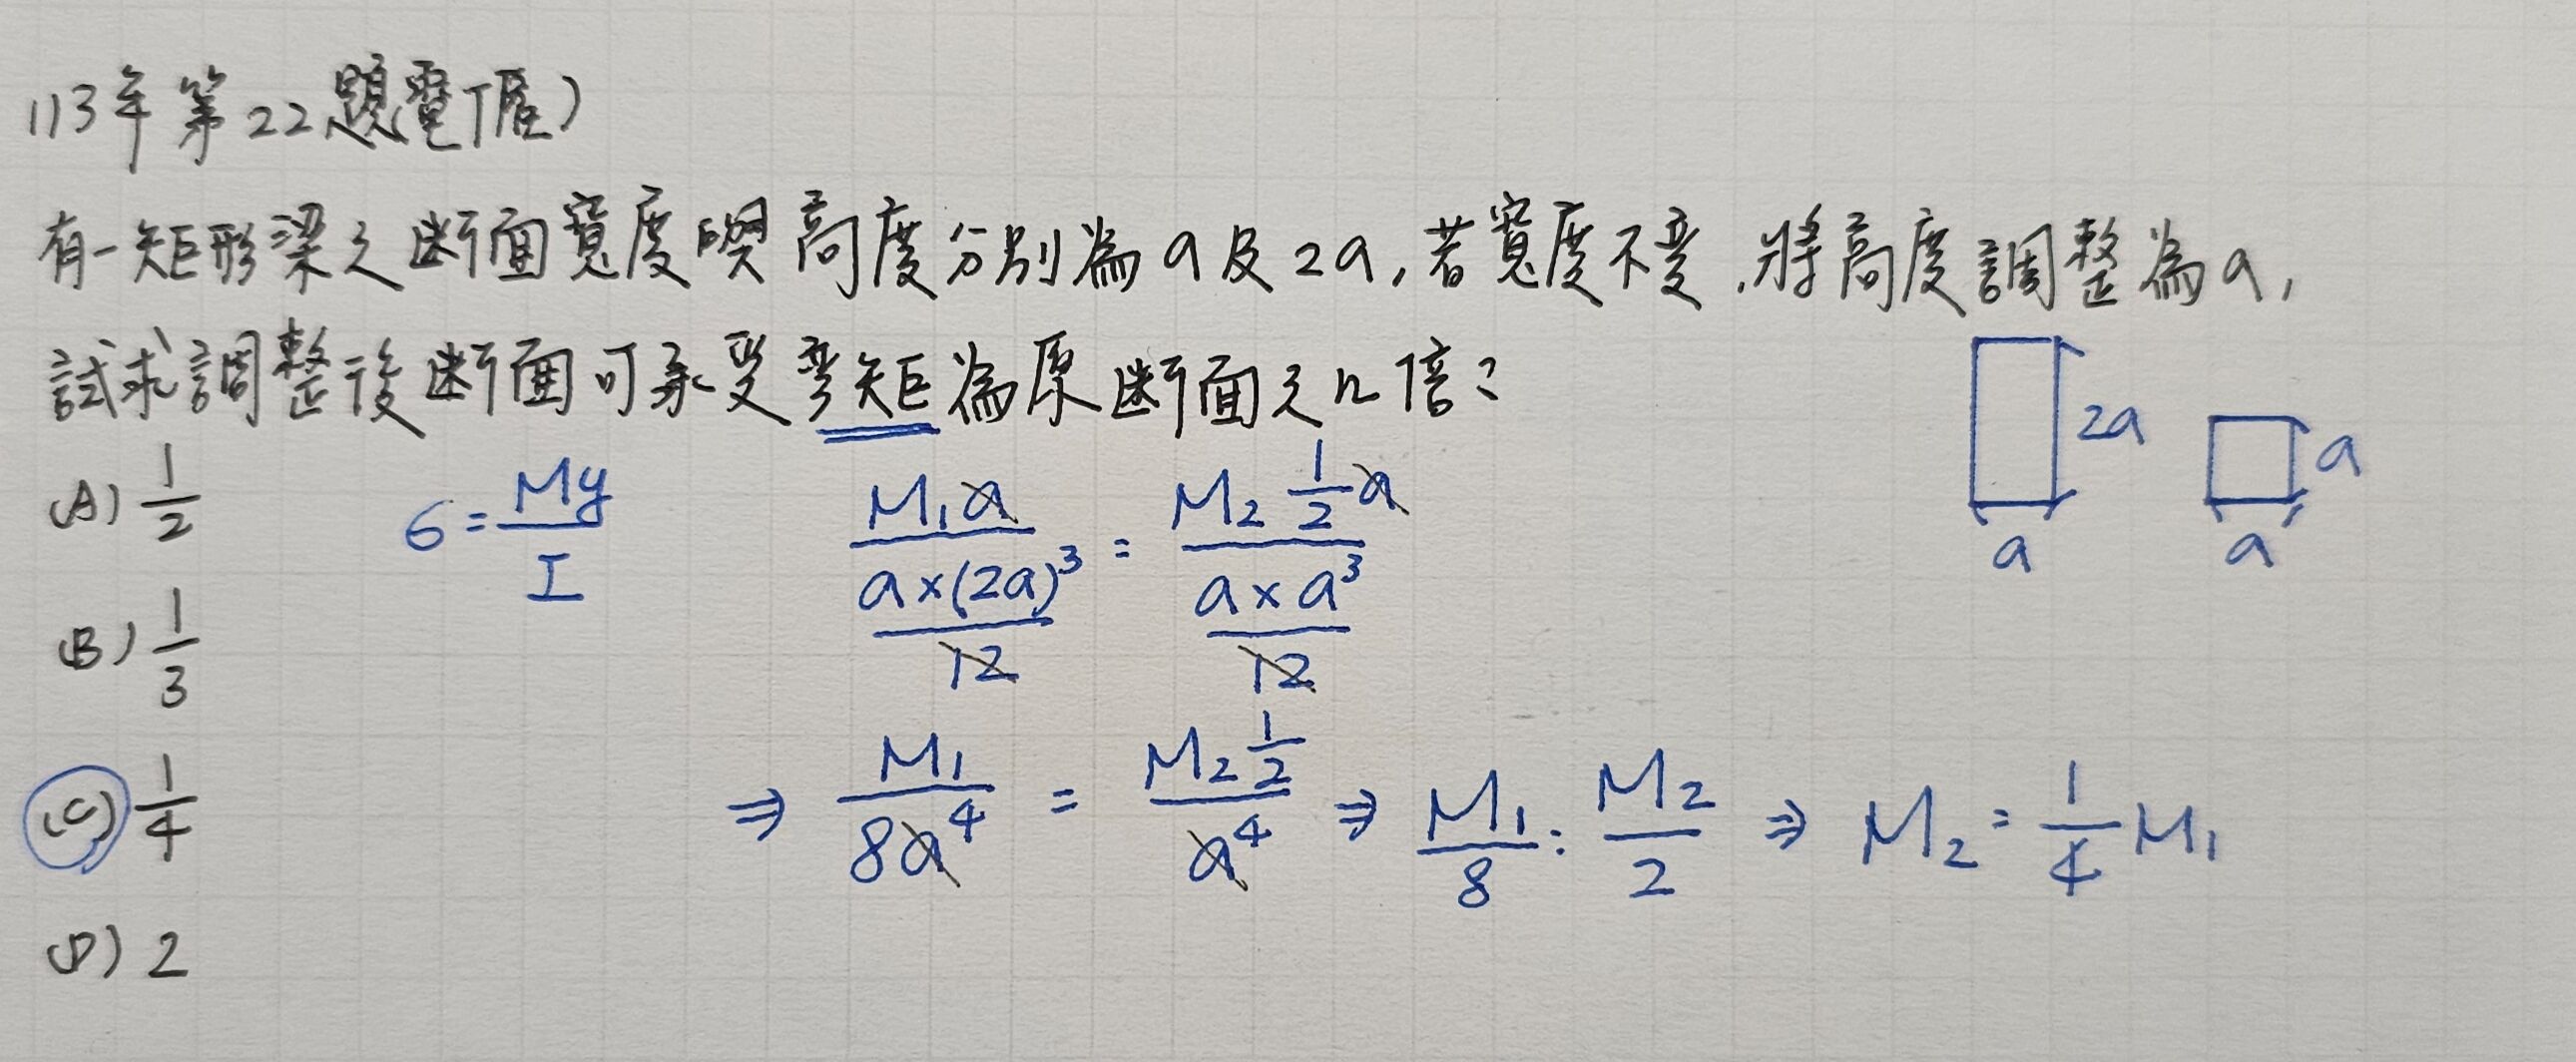 113年第22題電(雇)
有一矩形梁之斷面寬度與高度分別為a及2a,若寬度不變,將高度調整為a,
試求調整後斷面可承受彎矩為原斷面之几倍?
(A) 1/2
(B) 1/3
(C) 1/4
(D) 2
σ = My/I
M₁a / (a×(2a)³/12) = M₂ 1/2 a / (a×a³/12)
⇒ M₁/8a⁴ = M₂ 1/2 / a⁴ ⇒ M₁/8 = M₂/2 ⇒ M₂ = 1/4 M₁
2a
a
a
a